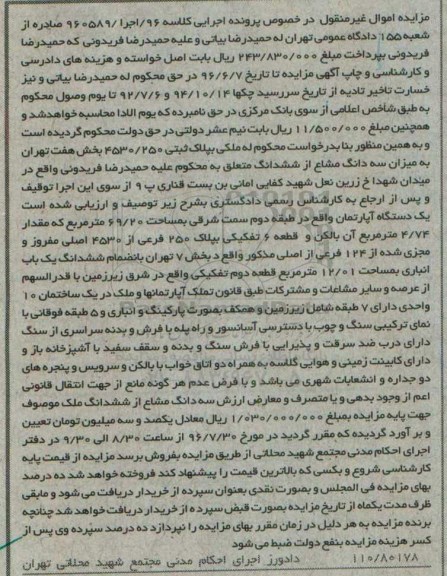 مزایده اموال غیرمنقول در خصوص پرونده اجرایی کلاسه ۹۶/اجرا/۹۶۰۵۸۹ صادره از
شعبه ۱۵۵ دادگاه عمومی تهران له حمیدرضا بیاتی و علیه حمیدرضا فریدونی که حمیدرضا
فریدونی بپرداخت مبلغ ۲۴۳/۸۳۰/۰۰۰ ریال بابت اصل خواسته و هزینه های دادرسی
و کارشناسی و چاپ آگهی مزایده تا تاریخ ۹۶/۶/۷ در حق محکوم له حمیدرضا بیاتی و نیز
خسارت تاخیر تادیه از تاریخ سررسید چکها ۹۴/۱۰/۱۴ و ۹۲/۷/۶ تا یوم وصول محکوم
به طبق شاخص اعلامی از سوی بانک مرکزی در حق نامبرده که یوم الادا محاسبه خواهد شد و
همچنین مبلغ ۱۱/۵۰۰/۰۰۰ ریال بابت نیم عشر دولتی در حق دولت محکوم گردیده است
و به همین منظور بنا بدرخواست محکوم له ملکی بپلاک ثبتی ۴۵۳۰/۲۵۰ بخش هفت تهران
به میزان سه دانگ مشاع از ششدانگ متعلق به محکوم علیه حمیدرضا فریدونی واقع در
میدان شهدا خ زرین نعل شهید کفایی امانی بن بست قناری پ ۹ از سوی این اجرا توقیف
و پس از ارجاع به کارشناس رسمی دادگستری بشرح زیر توصیف و ارزیابی شده است
یک دستگاه آپارتمان واقع در طبقه دوم سمت شرقی بمساحت ۶۹/۲۰ مترمربع که مقدار
۴/۷۴ مترمربع آن بالکن و قطعه ۶ تفکیکی بپلاک ۲۵۰ فرعی از ۴۵۳۰ اصلی مفروز و
مجزی شده از ۱۲۴ فرعی از اصلی مذکور واقع د بخش ۷ تهران بانضمام ششدانگ یک باب
انباری بمساحت ۱۲/۰۱ مترمربع قطعه دوم تفکیکی واقع در شرق زیرزمین با قدرالسهم
از عرصه و سایر مشاعات و مشترکات طبق قانون تملک آپارتمانها و ملک در یک ساختمان ۱۰
واحدی دارای ۷ طبقه شامل زیرزمین و همکف بصورت پارکینگ و انباری و ۵ طبقه فوقانی با
نمای ترکیبی سنگ و چوب با دسترسی آسانسور و راه پله با فرش و بدنه سراسری از سنگ
دارای درب ضد سرقت و پذیرایی با فرش سنگ و بدنه و سقف سفید با آشپزخانه باز و
دارای کابینت زمینی و هوایی گلاسه به همراه دو اتاق خواب با بالکن و سرویس و پنجره های
دو جداره و انشعابات شهری می باشد و با فرض عدم هر گونه مانع از جهت انتقال قانونی
اعم از وجود بدهی و یا متصرف و معارض ارزش سه دانگ مشاع از ششدانگ ملک موصوف
جهت پایه مزایده بمبلغ ۱/۰۳۰/۰۰۰/۰۰۰ ریال معادل یکصد و سه میلیون تومان تعیین
و بر آورد گردیده که مقرر گردید در مورخ ۹۶/۷/۳۰ از ساعت ۸/۳۰ الی ۹/۳۰ در دفتر
اجرای احکام مدنی مجتمع شهید محلاتی از طریق مزایده بفروش برسد مزایده از قیمت پایه
کارشناسی شروع و بکسی که بالاترین قیمت را پیشنهاد کند فروخته خواهد شد ده درصد
بهای مزایده فی المجلس و بصورت نقدی بعنوان سپرده از خریدار دریافت می شود و مابقی
ظرف مدت یکماه از تاریخ مزایده بصورت قبض سپرده از خریدار دریافت خواهد شد چنانچه
برنده مزایده به هر دلیل در زمان مقرر بهای مزایده را نپردازد ده درصد سپرده وی پس از
کسر هزینه مزایده بنفع دولت ضبط می شود
۱۱۰/۸۰۱۷۸ دادورز اجرای احکام مدنی مجتمع شهید محلاتی تهران